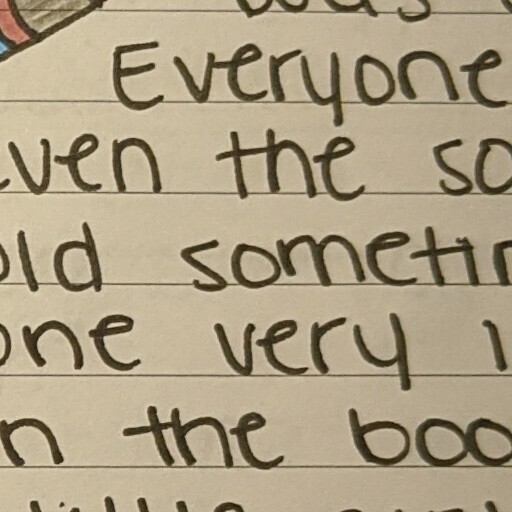 was
Everyone
ven the so
old sometim
one very i
n the boo